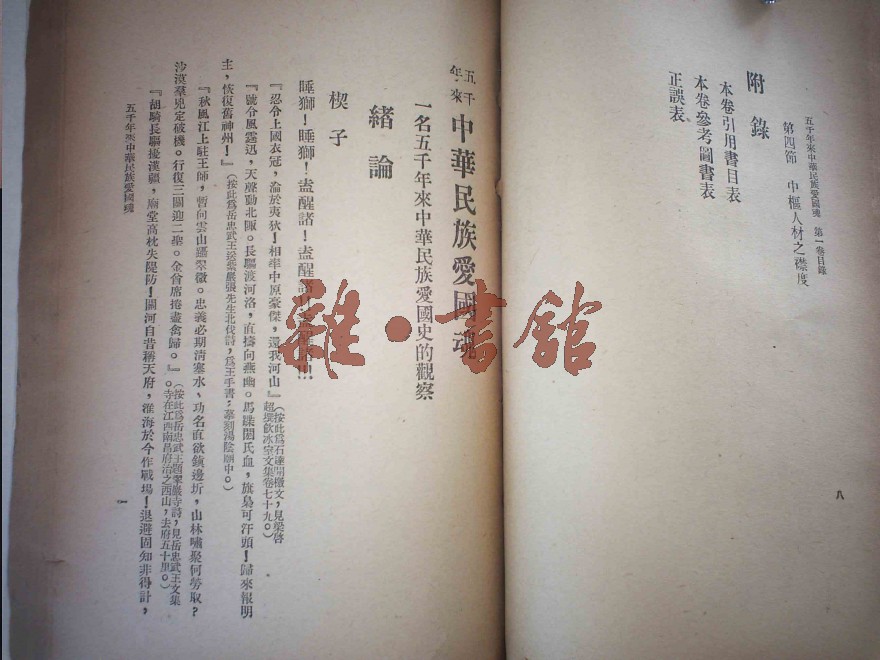 五千年來中華民族愛國魂 第一卷目錄
第四節 中樞人材之襟度
附錄
本卷引用書目表
本卷參考圖書表
正誤表
八
五千年來中華民族愛國魂
一名五千年來中華民族愛國史的觀察
緒論
楔子
睡獅！睡獅！盍醒諸！盍醒諸！！盍醒諸！！！
『忍令上國衣冠，淪於夷狄！相率中原豪傑，還我河山』（按此爲石達開檄文，見梁啓超撰飲冰室文集卷七十九。）
『號令風霆迅，天聲動北陬。長驅渡河洛，直擣向燕幽。馬蹀閼氏血，旗梟可汗頭！歸來報明
主，恢復舊神州！』（按此爲岳忠武王送紫巖張先生北伐詩，爲王手書，摹刻湯陰廟中。）
『秋風江上駐王師，暫向雲山躡翠微。忠義必期清塞水、功名直欲鎮邊圻，山林嘯聚何勞取？
沙漠羣兇定破機。行復三關迎二聖。金酋席捲盡禽歸。』（按此爲岳忠武王題翠巖寺詩，見岳忠武王文集。寺在江西南昌府治之西山，去府五十里。）
『胡騎長驅擾漢疆，廟堂高枕失隄防！關河自昔稱天府，淮海於今作戰場！退避固知非得計，
五千年來中華民族愛國魂
一
雜·書館